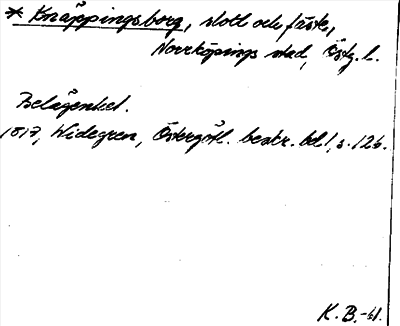 * Knäppingsborg, slott och fäste,
Norrköpings stad, Östg. l.
Belägenhet.
1817, Widegren, Östergötl. beskr. bd 1, s. 126.
K. B. -41.